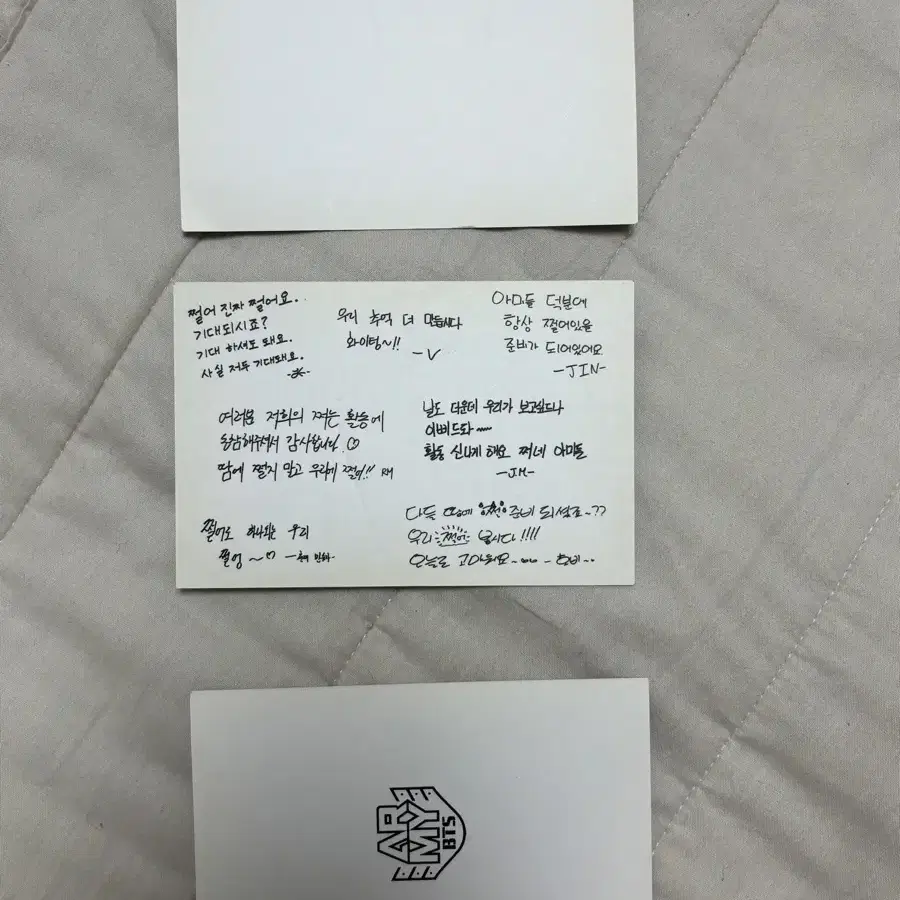 쩔어 진짜 쩔어요.
기대되시죠?
기대 하셔도 돼요.
사실 저두 기대돼요.
우리 추억 더 만듭시다
화이팅~!!
-V
아미들 덕분에
항상 쩔어있을
준비가 되어있어요
-JIN-
여러분 저희의 쩌는 활동에
동참해주셔서 감사합니다. ♡
땀에 쩔지 말고 우리에 쩔어!!
날도 더운데 우리가 보고싶으나
활동 신나게 해요 쩌네 아미들
-JM-
쩔어도 하나되는 우리
쩔엉~
다들 준비 되셨죠~??
우리 쩔어 봅시다!!!!
오늘도 고마워요~
ARMY
BTS